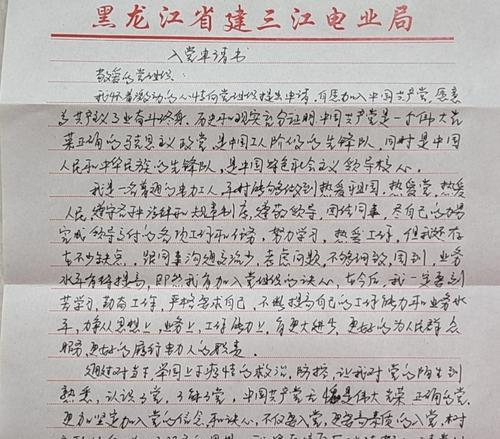 黑龙江省建三江电业局
入党申请书
敬爱的党组织:
我怀着激动的心情向党组织提出申请,自愿加入中国共产党,愿意
为共产主义事业奋斗终身。历史和现实充分证明中国共产党是一个伟大光
荣正确的马克思主义政党,是中国工人阶级的先锋队,同时是中国
人民和中华民族的先锋队,是中国特色社会主义领导核心。
我是一名普通的电力工人,平时能够做到热爱祖国,热爱党,热爱
人民,遵守各种法律和规章制度,尊敬领导,团结同事,尽自己的力量
完成领导交付的各项工作和任务,努力学习,热爱工作,但我还存
在不少缺点,跟同事沟通交流少,考虑问题不够细致周到,业务
水平有待提高,即然我有加入党组织的决心,在今后,我一定要刻
苦学习,勤奋工作,严格要求自己,不断提高自己的工作能力和业务水
平,力争从思想上,业务上,工作能力上,有更大进步,更好的为人民群众
服务,更好的履行电力人的职责。
通过对当下举国上下疫情的救治,防控,让我对党的陌生到
熟悉,认识了党,了解了党,中国共产党无愧是伟大光荣正确的党,
更加坚定加入党的信念和决心,不仅要入党,更要高素质的入党,树